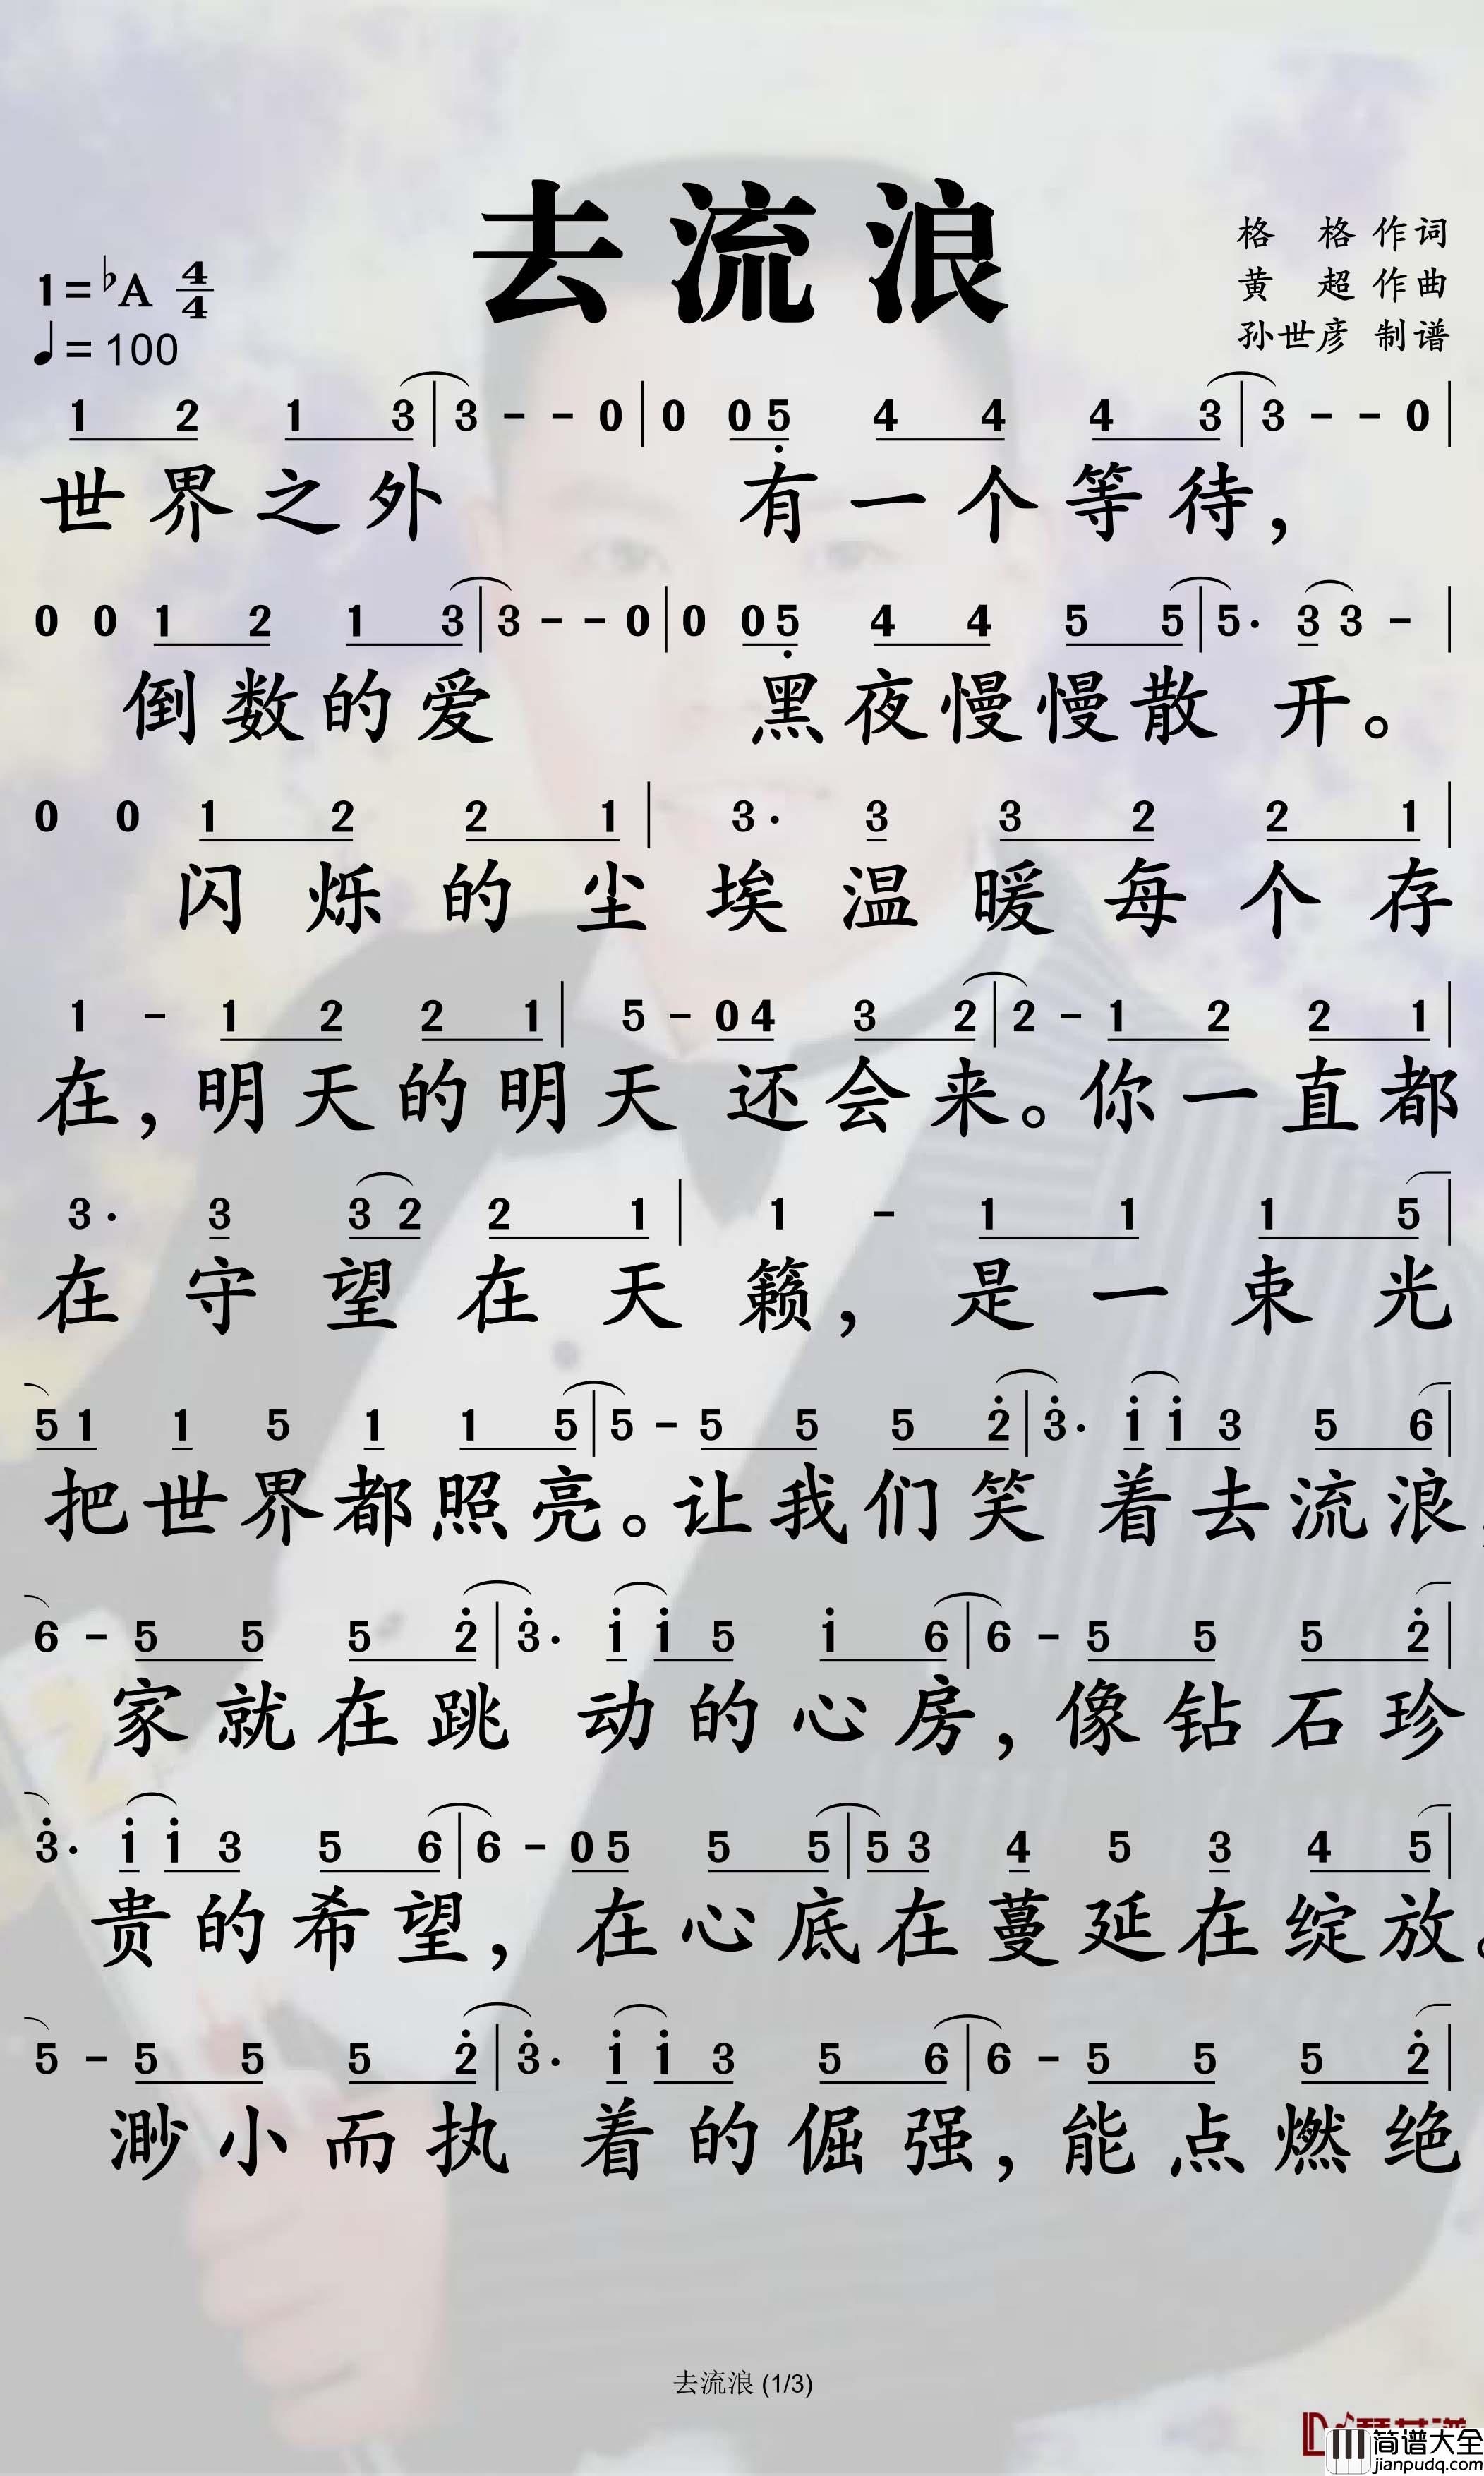 去流浪
1=♭A 4/4
♩=100
格 格 作词
黄 超 作曲
孙世彦 制谱
1 2 1 3 | 3 - - 0 | 0 0 5 4 4 4 3 | 3 - - 0 |
世界之外 有一个等待，
0 0 1 2 1 3 | 3 - - 0 | 0 0 5 4 4 5 5 | 5· 3 3 - |
倒数的爱 黑夜慢慢散 开。
0 0 1 2 2 1 | 3· 3 3 2 2 1 |
闪烁的尘埃温暖每个存
1 - 1 2 2 1 | 5 - 0 4 3 2 | 2 - 1 2 2 1 |
在，明天的明天 还会来。你一直都
3· 3 3 2 2 1 | 1 - 1 1 1 5 |
在守望在天籁，是一束光
5 1 1 5 1 1 5 | 5 - 5 5 5 2̇ | 3̇· 1̇ 1̇ 3 5 6 |
把世界都照亮。让我们笑 着去流浪，
6 - 5 5 5 2̇ | 3̇· 1̇ 1̇ 5 1̇ 6 | 6 - 5 5 5 2̇ |
家就在跳 动的心房，像钻石珍
3̇· 1̇ 1̇ 3 5 6 | 6 - 0 5 5 5 | 5 3 4 5 3 4 5 |
贵的希望，在心底在蔓延在绽放。
5 - 5 5 5 2̇ | 3̇· 1̇ 1̇ 3 5 6 | 6 - 5 5 5 2̇ |
渺小而执 着的倔强，能点燃绝
去流浪 (1/3)
简谱大全
jianpudq.com